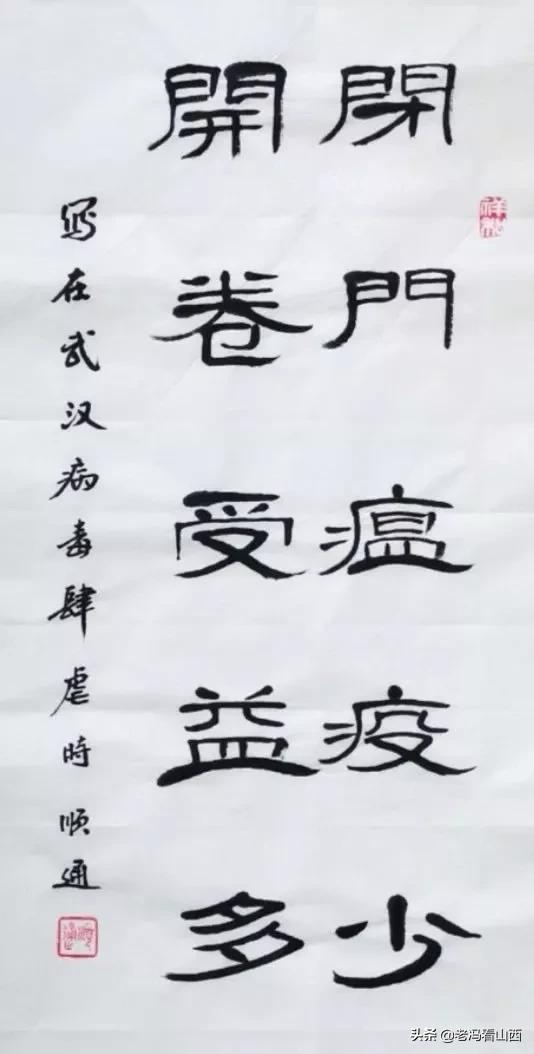 閉門瘟疫少
開卷受益多
寫在武汉病毒肆虐時 順通
头条 @老冯看山西